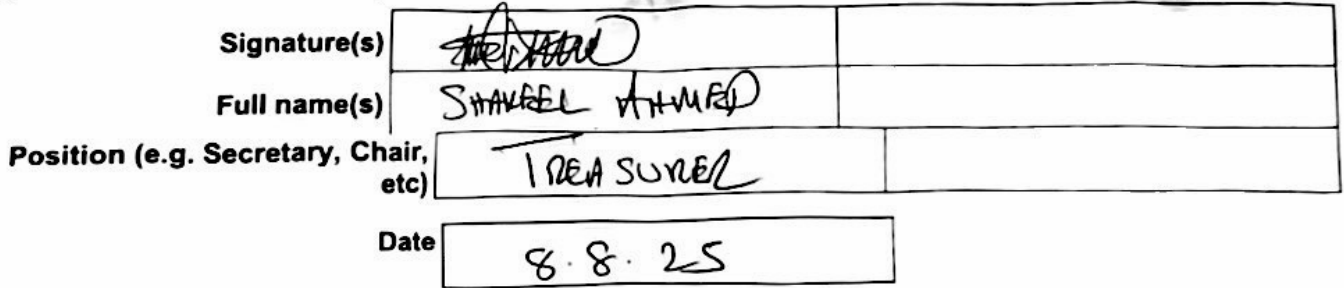 Signature(s)
Full name(s) SHAKEEL AHMED
Position (e.g. Secretary, Chair,
etc) TREASURER
Date 8.8.25